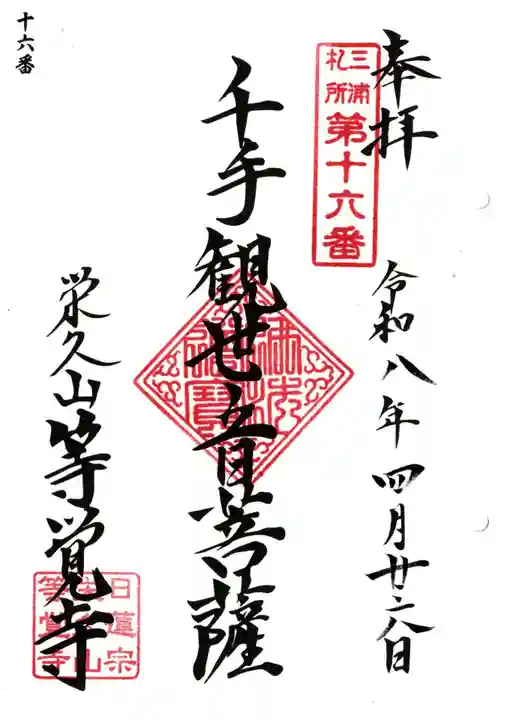 奉拝
令和八年四月廿六日
三浦
札所
第十六番
千手観世音菩薩
佛法僧寶
栄久山等覚寺
日蓮宗
栄久山
等覚寺
十六番